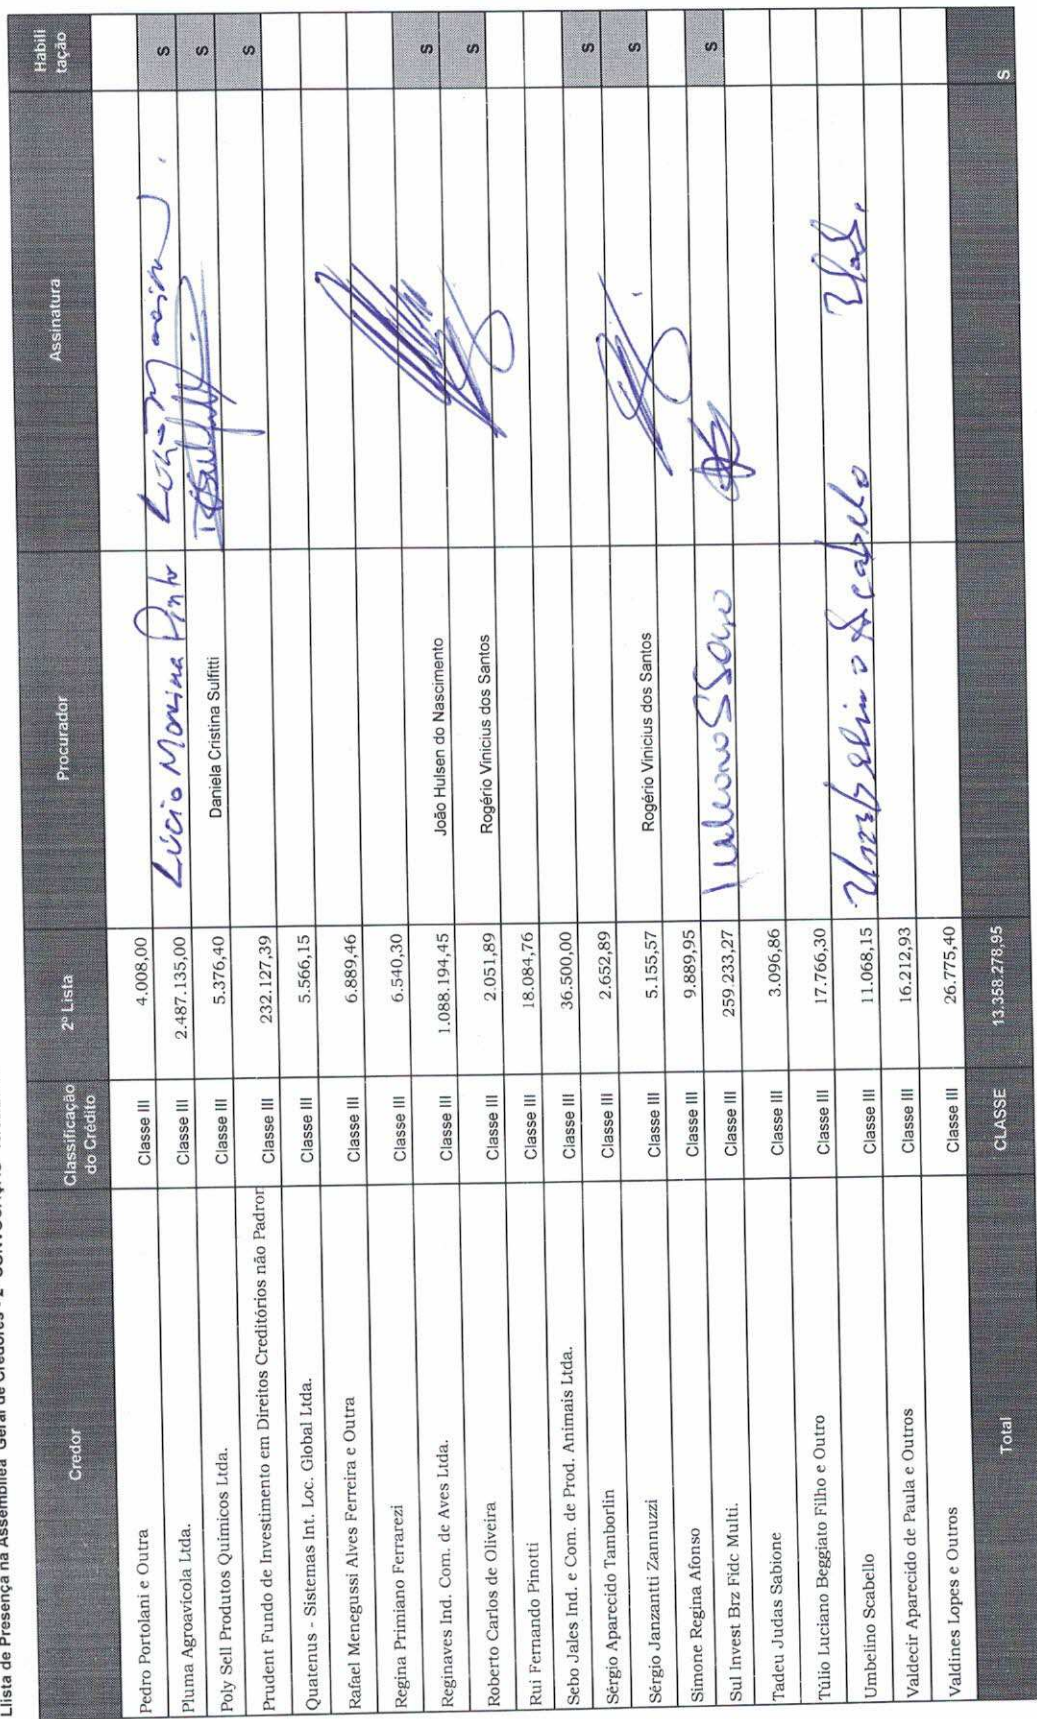 Llista de Presença na Assembléia Geral de Credores - 2ª CONVOCAÇÃO
Credor Classificação do Crédito 2º Lista Procurador Assinatura Habili tação
Pedro Portolani e Outra Classe III 4.008,00
Pluma Agroavicola Ltda. Classe III 2.487.135,00 Lúcio Moreira Pinto Lúcio Moreira S
Poly Sell Produtos Quimicos Ltda. Classe III 5.376,40 Daniela Cristina Sulfitti S
Prudent Fundo de Investimento em Direitos Creditórios não Padron Classe III 232.127,39 S
Quatenus - Sistemas Int. Loc. Global Ltda. Classe III 5.566,15
Rafael Menegussi Alves Ferreira e Outra Classe III 6.889,46
Regina Primiano Ferrarezi Classe III 6.540,30
Reginaves Ind. Com. de Aves Ltda. Classe III 1.088.194,45 João Hulsen do Nascimento S
Roberto Carlos de Oliveira Classe III 2.051,89 Rogério Vinicius dos Santos S
Rui Fernando Pinotti Classe III 18.084,76
Sebo Jales Ind. e Com. de Prod. Animais Ltda. Classe III 36.500,00
Sérgio Aparecido Tamborlin Classe III 2.652,89 S
Sérgio Janzantti Zannuzzi Classe III 5.155,57 Rogério Vinicius dos Santos S
Simone Regina Afonso Classe III 9.889,95
Sul Invest Brz Fidc Multi. Classe III 259.233,27 S
Tadeu Judas Sabione Classe III 3.096,86
Túlio Luciano Beggiato Filho e Outro Classe III 17.766,30
Umbelino Scabello Classe III 11.068,15 Umbelino Scabelo
Valdecir Aparecido de Paula e Outros Classe III 16.212,93
Valdines Lopes e Outros Classe III 26.775,40
Total CLASSE 13.358.278,95 S